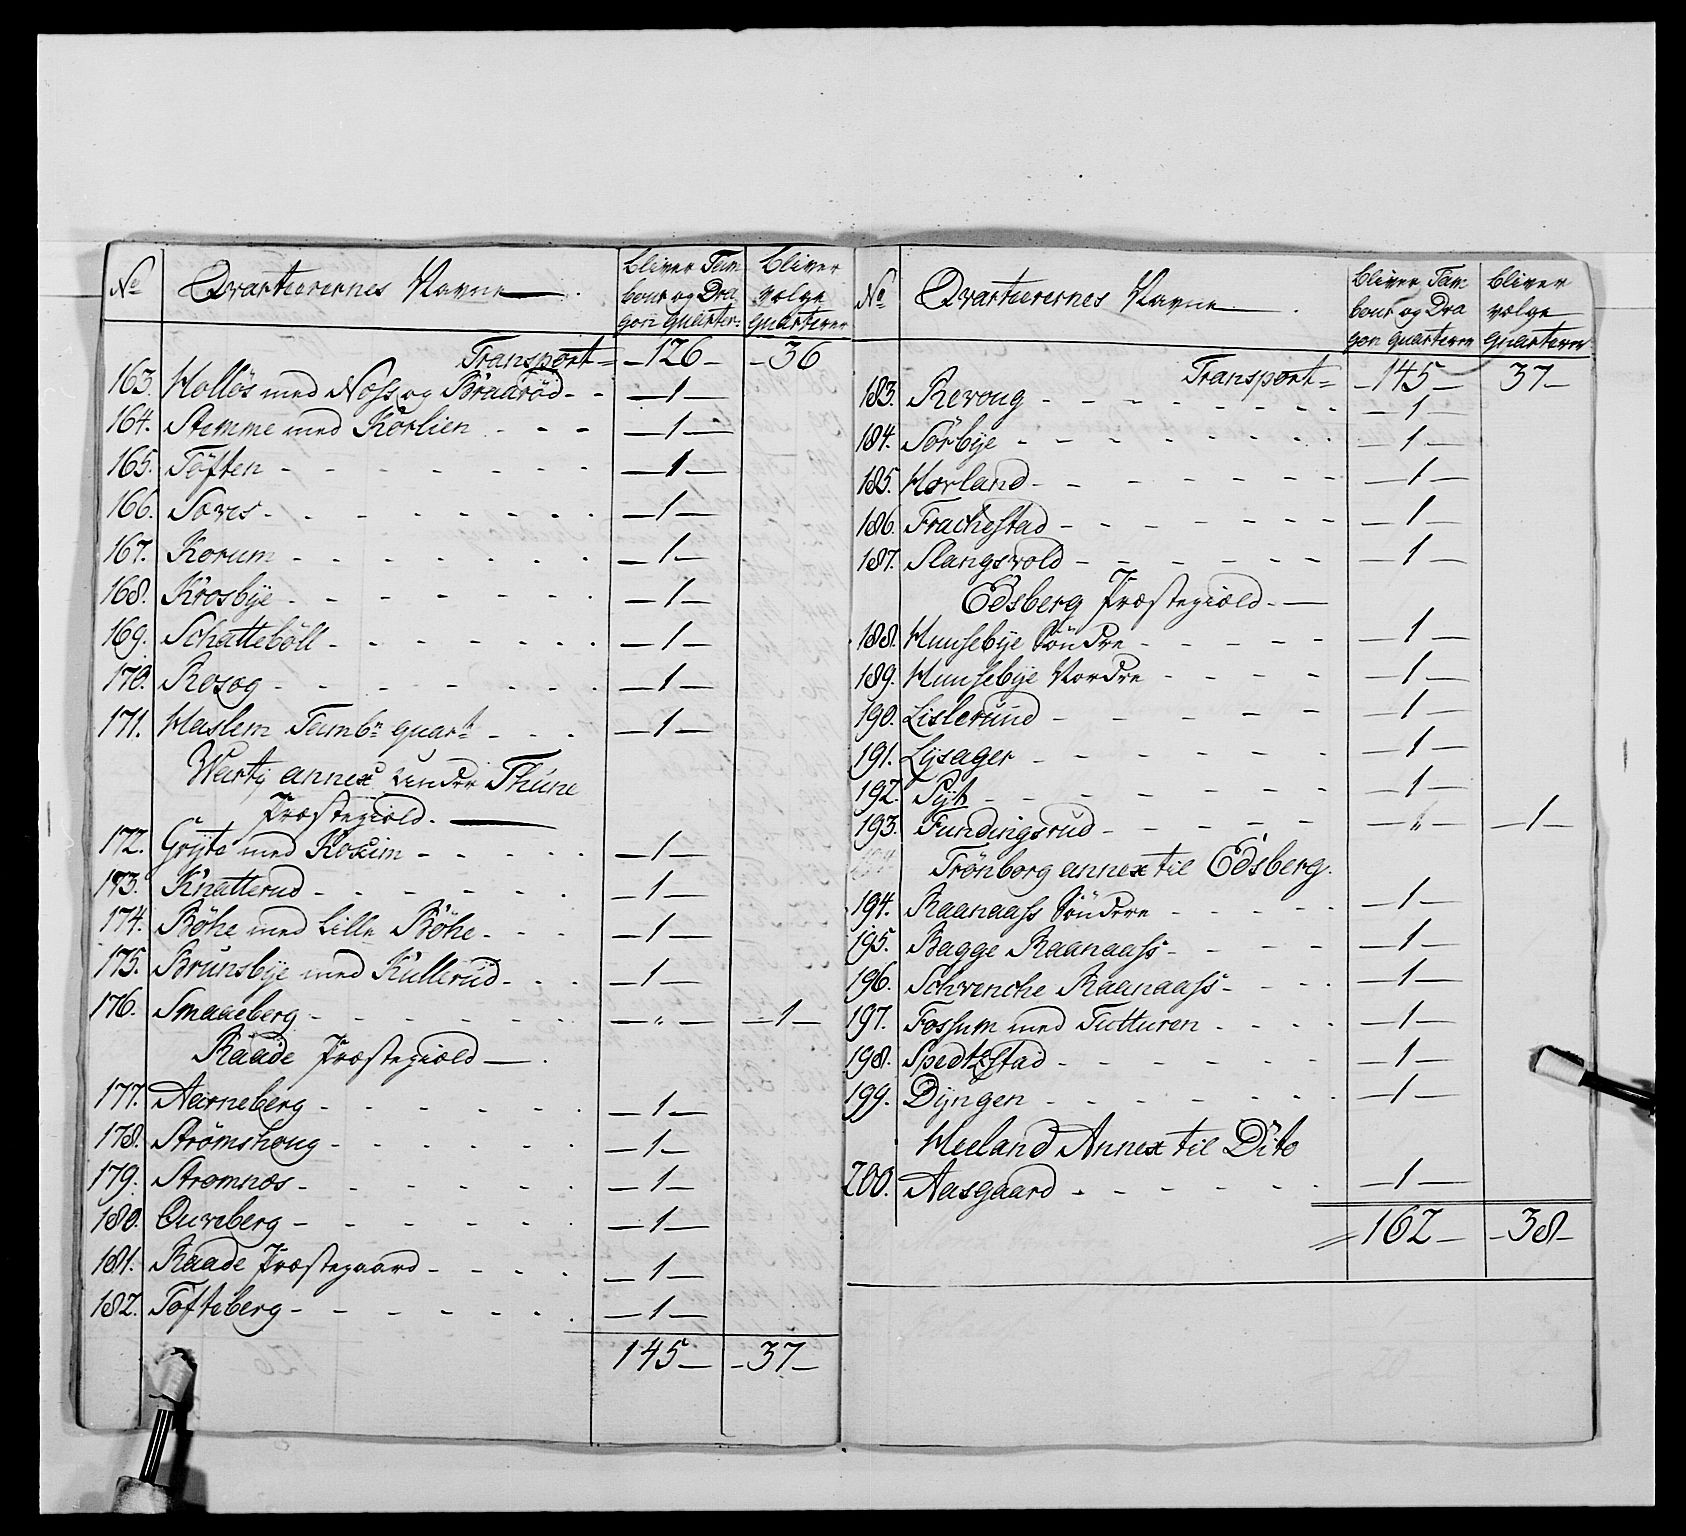 No Qvarteerernes Navne bliver Tam bliver
bour og Dra vælge
gon quarter: quarterer
Transport= -126- -36
163. Holløs med Noss og Braarød - - -1-
164. Stemme med Korlien - - - -1-
165. Töften - - - - - - - -1-
166. Soves - - - - - - - -1-
167. Korum - - - - - - - -1-
168. Krosbÿe - - - - - - - -1-
169. Schatteböll - - - - - - -1-
170. Rosog - - - - - - - -1-
171. Haslem Tambr quartr - - - -1-
Wartÿ annex under Thune
Præstegiæld.
172. Grÿte med Kosim - - - - - -1-
173. Knatterud - - - - - - - -1-
174. Böhe med Lille Böhe - - - -1-
175. Brunsbÿe med Kullerud - - - -1-
176. Smaaeberg - - - - - - - -"- -1-
Raade Præstegiæld
177. Aarneberg - - - - - - -1-
178. Strömshoug - - - - - - -1-
179. Stromnæs - - - - - - -1-
180. Ouveberg - - - - - - - -1-
181. Raade Præstegaard - - - - -1-
182. Tofteberg - - - - - - -1-
145- -37-
No Qvarteerernes Navne bliver Tam bliver
bour og Dra vælge
gon quarterer quarterer
Transport= -145- 37-
183. Revoug - - - - - - - -1-
184. Sörbÿe - - - - - - - -1-
185. Horland - - - - - - - -1-
186. Frachestad - - - - - - - -1-
187. Slangsvold - - - - - - -1-
Edsberg Præstegiæld.
188. Huusebÿe Söndre - - - - - -1-
189. Huusebÿe Nordre - - - - -1-
190. Lislerund - - - - - -1-
191. Lÿsager - - - - - - -1-
192. Sÿt - - - - - - - -1-
193. Fundingsrud - - - - - -"- -1-
Trönborg annex til Edsberg.
194. Raanaass Söndere - - - - - -1-
195. Bagge Raanaass - - - - -1-
196. Schvenche Raanaass - - - - -1-
197. Fossum med Tutturen - - - - -1-
198. Spedtzstad - - - - - - -1-
199. Dÿngen - - - - - - - -1-
Heeland Annex til Dito
200. Aasgaard - - - - - - -1-
162- -38-